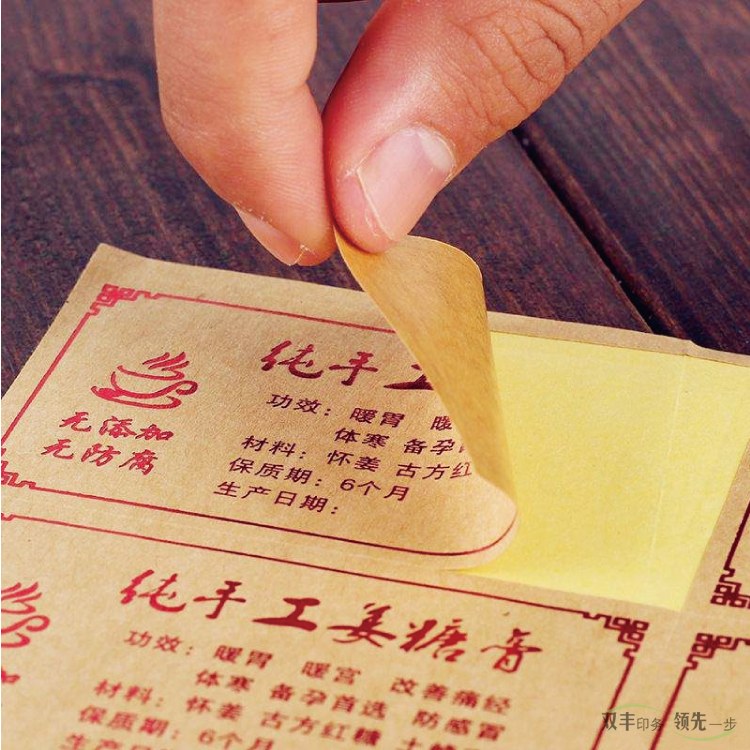 纯手工
功效：暖胃 暖
体寒 备孕
无添加
无防腐
材料：怀姜 古方红
保质期：6个月
生产日期：
纯手工姜糖膏
功效：暖胃 暖宫 改善痛经
体寒 备孕首选 防感冒
材料：怀姜 古方红糖
保质期：6个月
双丰印务 领先一步